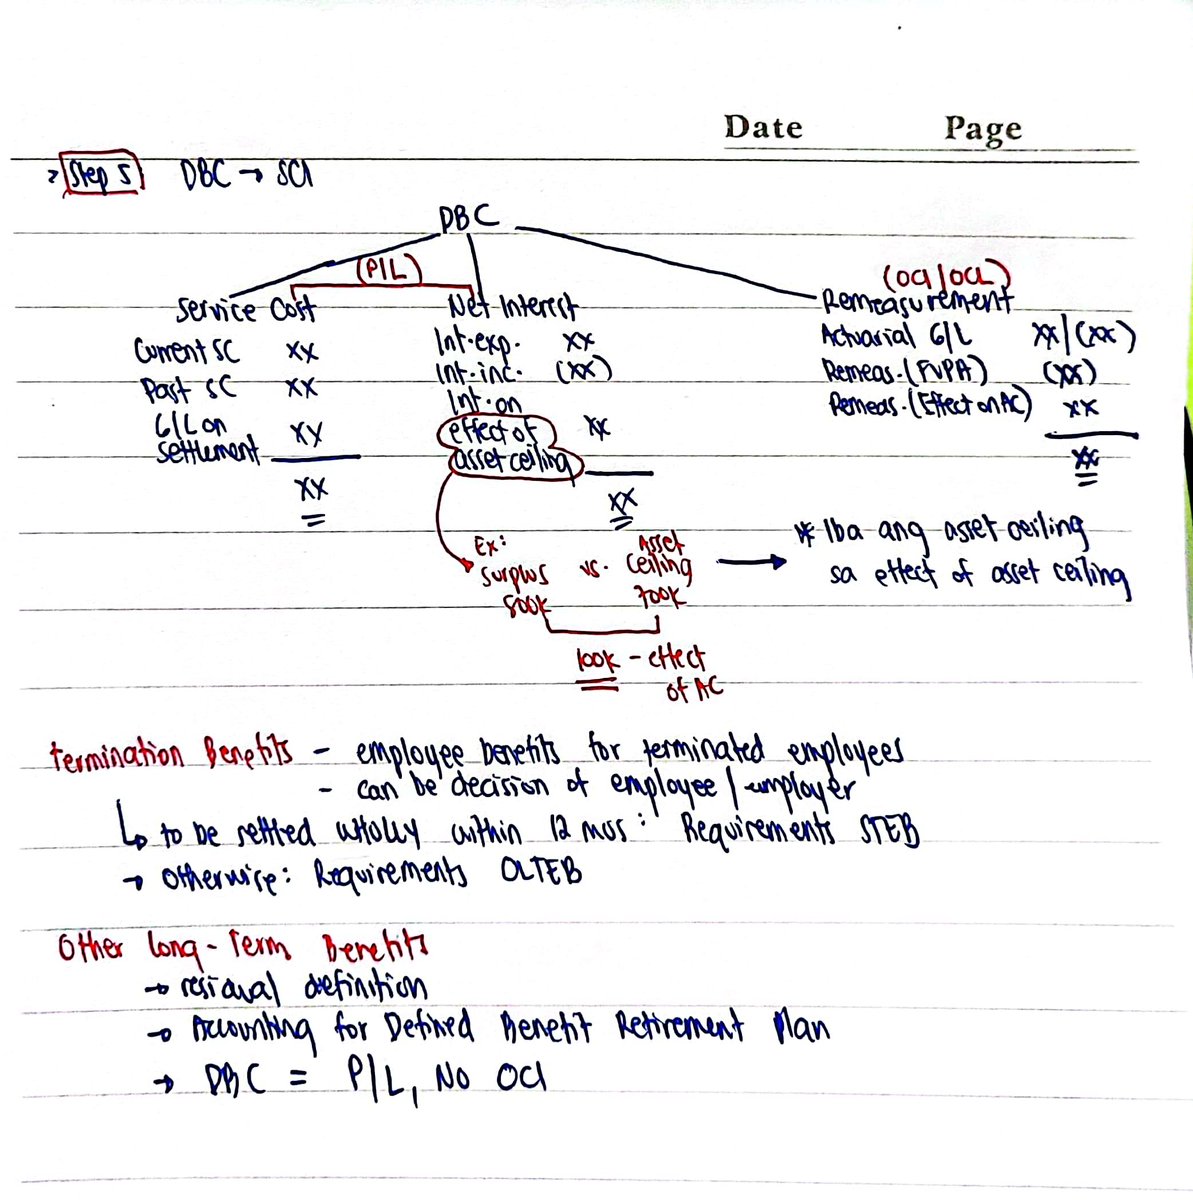 Date Page
> Step 5 DBC → SCI
DBC
(P/L)
(OCI/OCL)
Service Cost
Current SC xx
Past SC xx
G/L on
Settlement xx
xx
Net Interest
Int. exp. xx
Int. inc. (xx)
Int. on
effect of
asset ceiling xx
xx
Remeasurement
Actuarial G/L xx/(xx)
Remeas. (FVPA) (xx)
Remeas. (Effect on AC) xx
xx
Ex:
Surplus vs. Asset Ceiling
800k 700k
100k - effect
of AC
* Iba ang asset ceiling
sa effect of asset ceiling
Termination Benefits - employee benefits for terminated employees
- can be decision of employee / employer
↳ to be settled WHOLLY within 12 mos: Requirements STEB
→ Otherwise: Requirements OLTEB
Other Long-Term Benefits
→ residual definition
→ Accounting for Defined Benefit Retirement Plan
→ DBC = P/L, No OCI